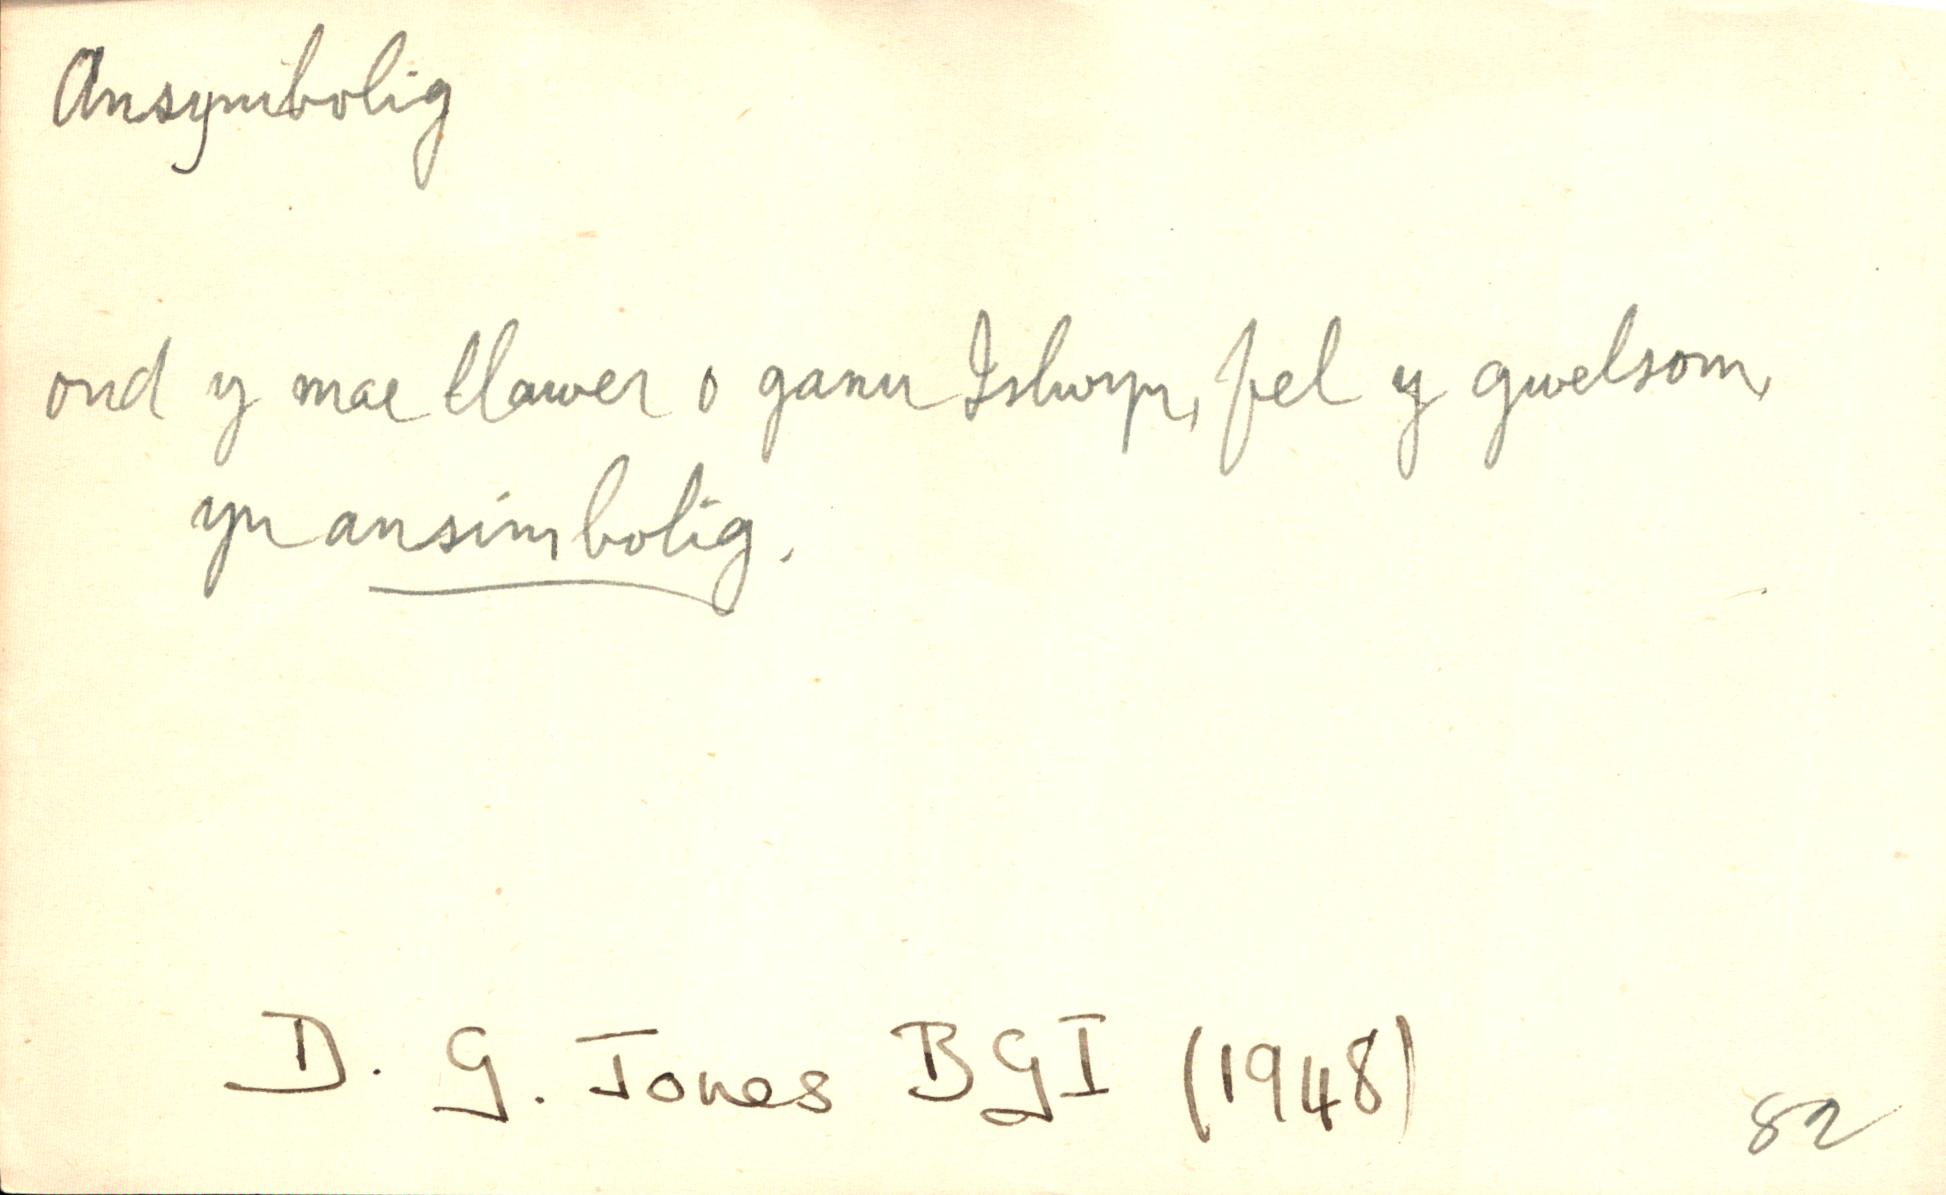 Ansymbolig
ond y mae llawer o ganu Islwyn, fel y gwelsom,
yn ansimbolig.
D. G. Jones BGI (1948)
82